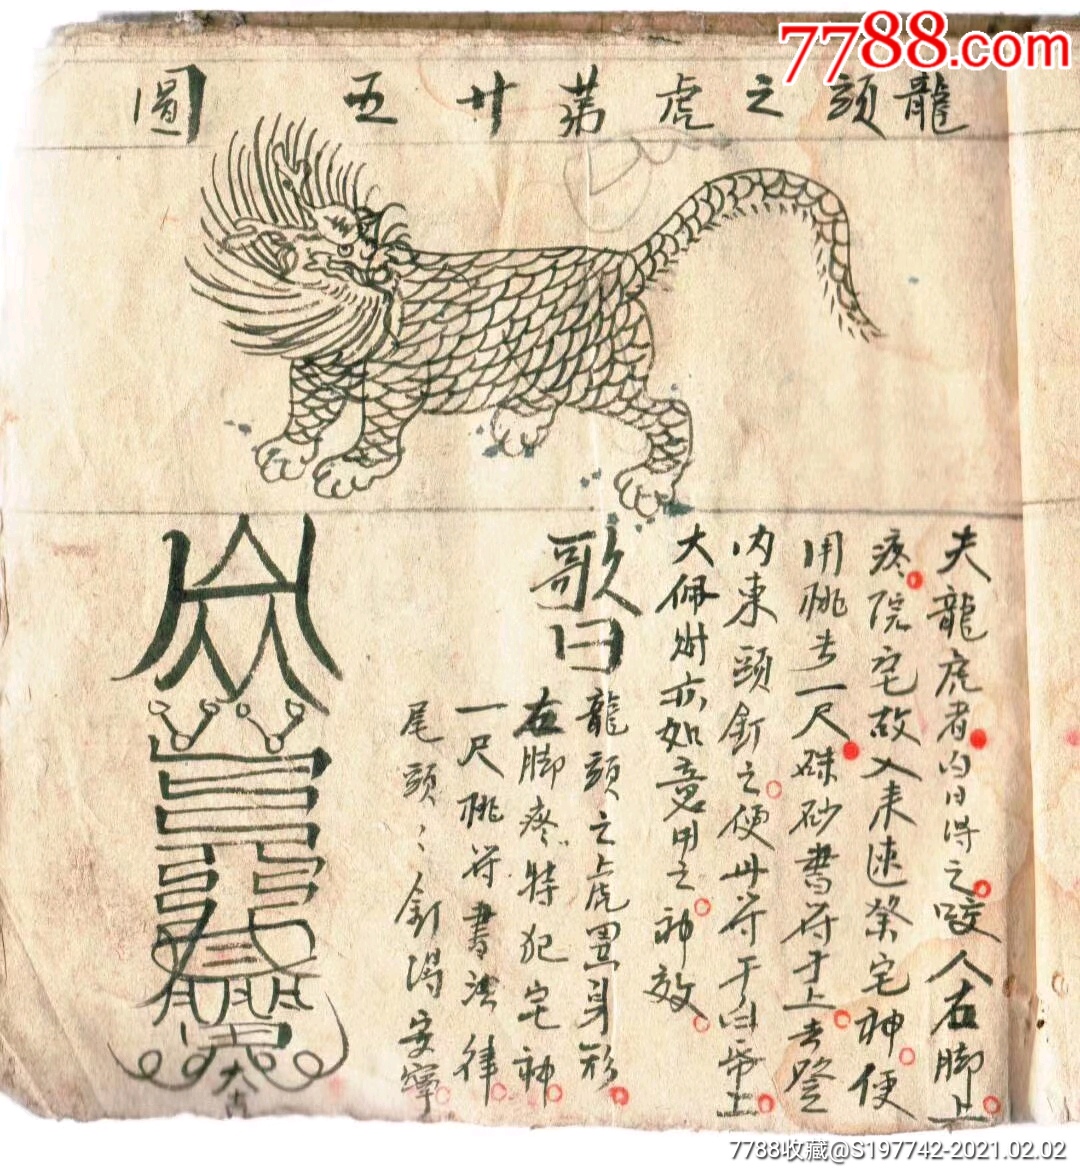 7788.com
龍頭之虎苐廿五圖
夫龍虎者內日得之咬人右脚上
疼院宅故入来速祭宅神便
用桃一尺硃砂書符于上去登
內東頭釘之便丗符于白帋上
大佩亦如意用之神效
歌曰
龍頭之虎黑身
右脚疼特犯宅神
一尺桃符書法律
尾頭〻釘得安寧
7788收藏@S197742-2021.02.02